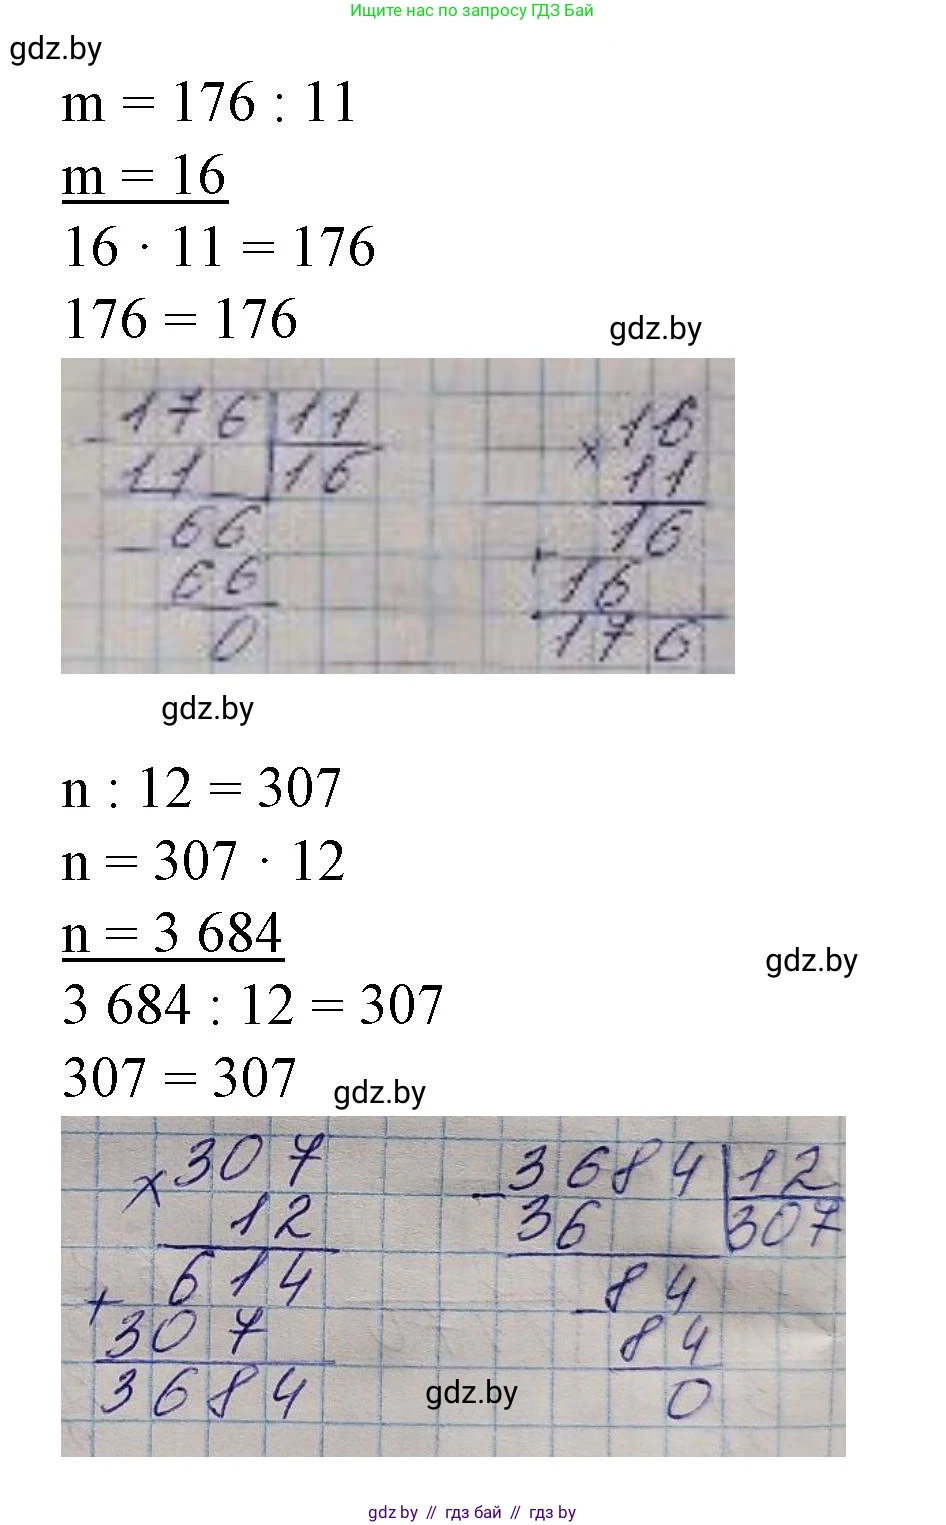 Ищите нас по запросу ГДЗ Бай
gdz.by
m = 176 : 11
m = 16
16 · 11 = 176
176 = 176
gdz.by
- 176 | 11
11 | 16
- 66
66
0
x 16
11
16
+ 16
176
gdz.by
n : 12 = 307
n = 307 · 12
n = 3 684
gdz.by
3 684 : 12 = 307
307 = 307
gdz.by
x 307
12
614
+ 307
3684
- 3684 | 12
36 | 307
- 84
84
0
gdz.by
gdz.by // гдз бай // гдз by